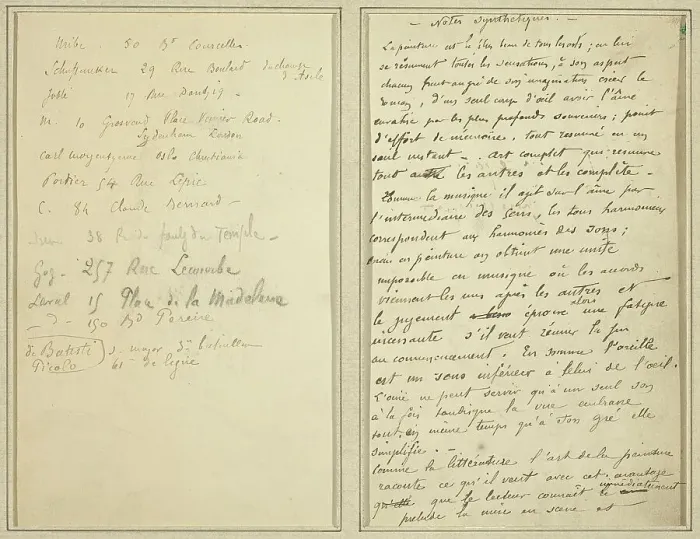 Uribe. 50 Bd Courcelles.
Schuffenecker 29 Rue Boulard
Jobbé 17 Rue
M. 10 Grosvenor Place Venner Road.
Sydenham London
Carl Oslo Christiania
Portier 54 Rue Lepic
C. 84 Claude Bernard —
38 R. du faubg du Temple —
Gog. 257 Rue Lecourbe
Laval 15 Place de la Madeleine
— d — 150 Bd Pereire
de Batisti s. major 5e bataillon
Picolo 61 de ligne
— Notes Synthétiques. —
La peinture est le plus beau de tous les arts ; en lui
se résument toutes les sensations, à son aspect
chacun peut au gré de son imagination créer le
roman, d'un seul coup d'œil avoir l'âme
envahie par les plus profonds souvenirs ; point
d'effort de mémoire, tout résumé en un
seul instant —. Art complet qui résume
tout les autres et les complète —
Comme la musique il agit sur l'âme par
l'intermédiaire des sens, les tons harmonieux
correspondent aux harmonies des sons ;
mais en peinture on obtient une unité
impossible en musique où les accords
viennent les uns après les autres et
le jugement éprouve alors une fatigue
incessante s'il veut réunir la fin
au commencement. En somme l'oreille
est un sens inférieur à celui de l'œil.
L'ouïe ne peut servir qu'à un seul son
à la fois tandis que la vue embrasse
tout, en même temps qu'à son gré elle
simplifie. —
Comme la littérature l'art de la peinture
raconte ce qu'il veut avec cet avantage
que le lecteur connaît immédiatement le
prélude la mise en scène et